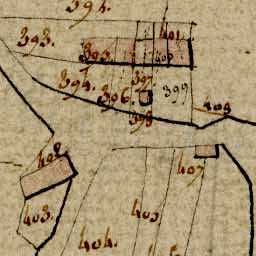 394.
393.
401
395
400
394.
397
396.
399
398
409
408
407
403.
405
404.